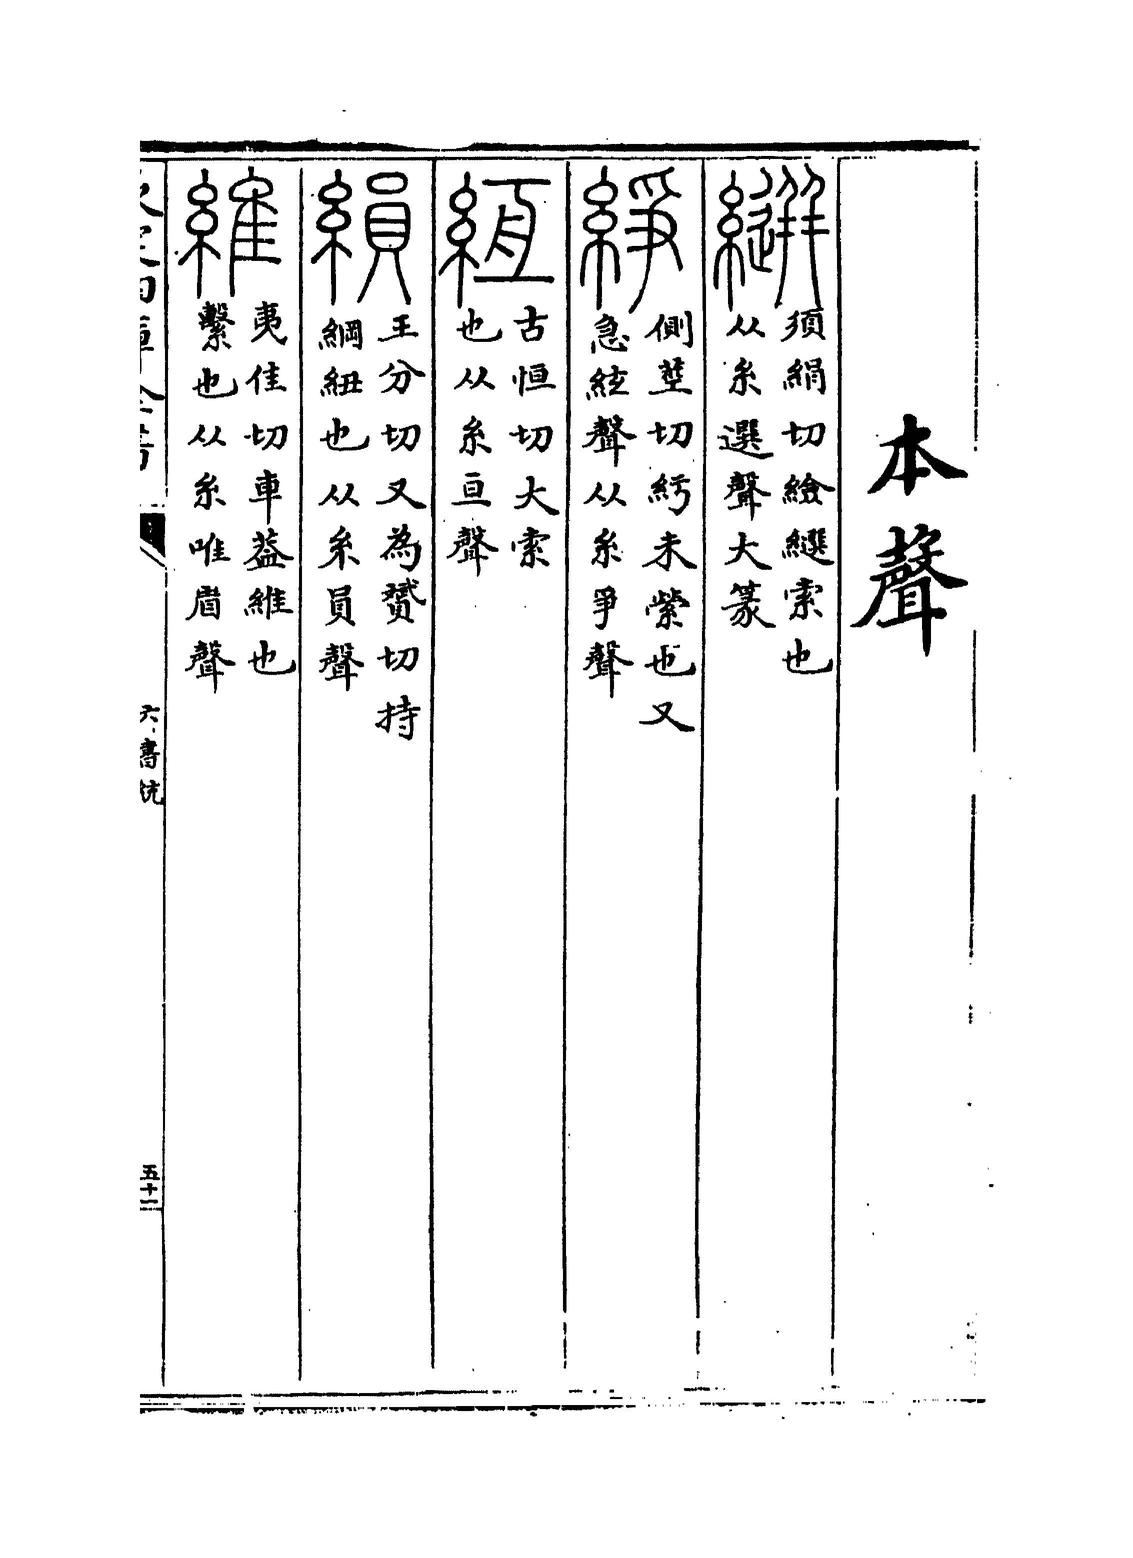 本聲
縼
須絹切縼索也
从糸選聲大篆
綪
側莖切紆未縈也又
急絃聲从糸爭聲
緪
古恒切大索
也从糸亘聲
縜
王分切又為贇切持
綱紐也从糸員聲
維
夷佳切車葢維也
繫也从糸唯省聲
欽定四庫全書
六書統
五十一